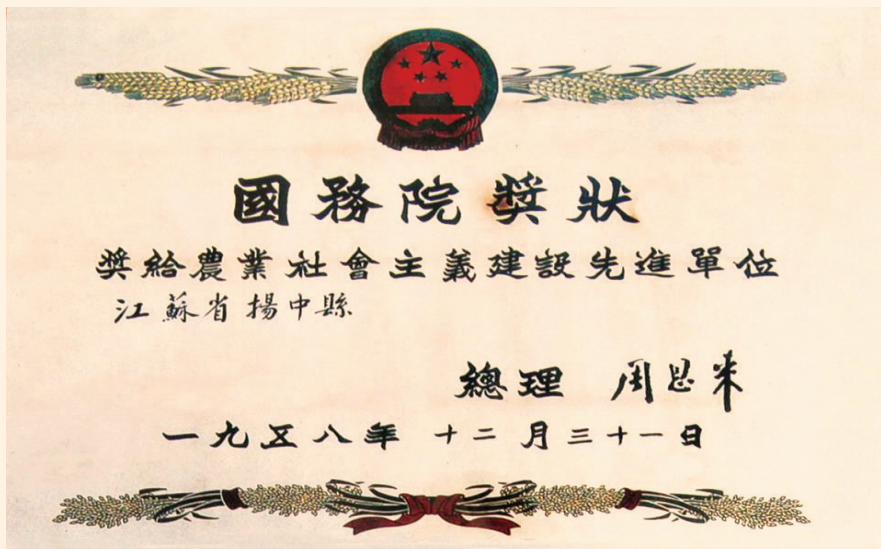 國務院獎狀
獎給農業社會主義建設先進單位
江蘇省揚中縣
總理 周恩來
一九五八年 十二月三十一日